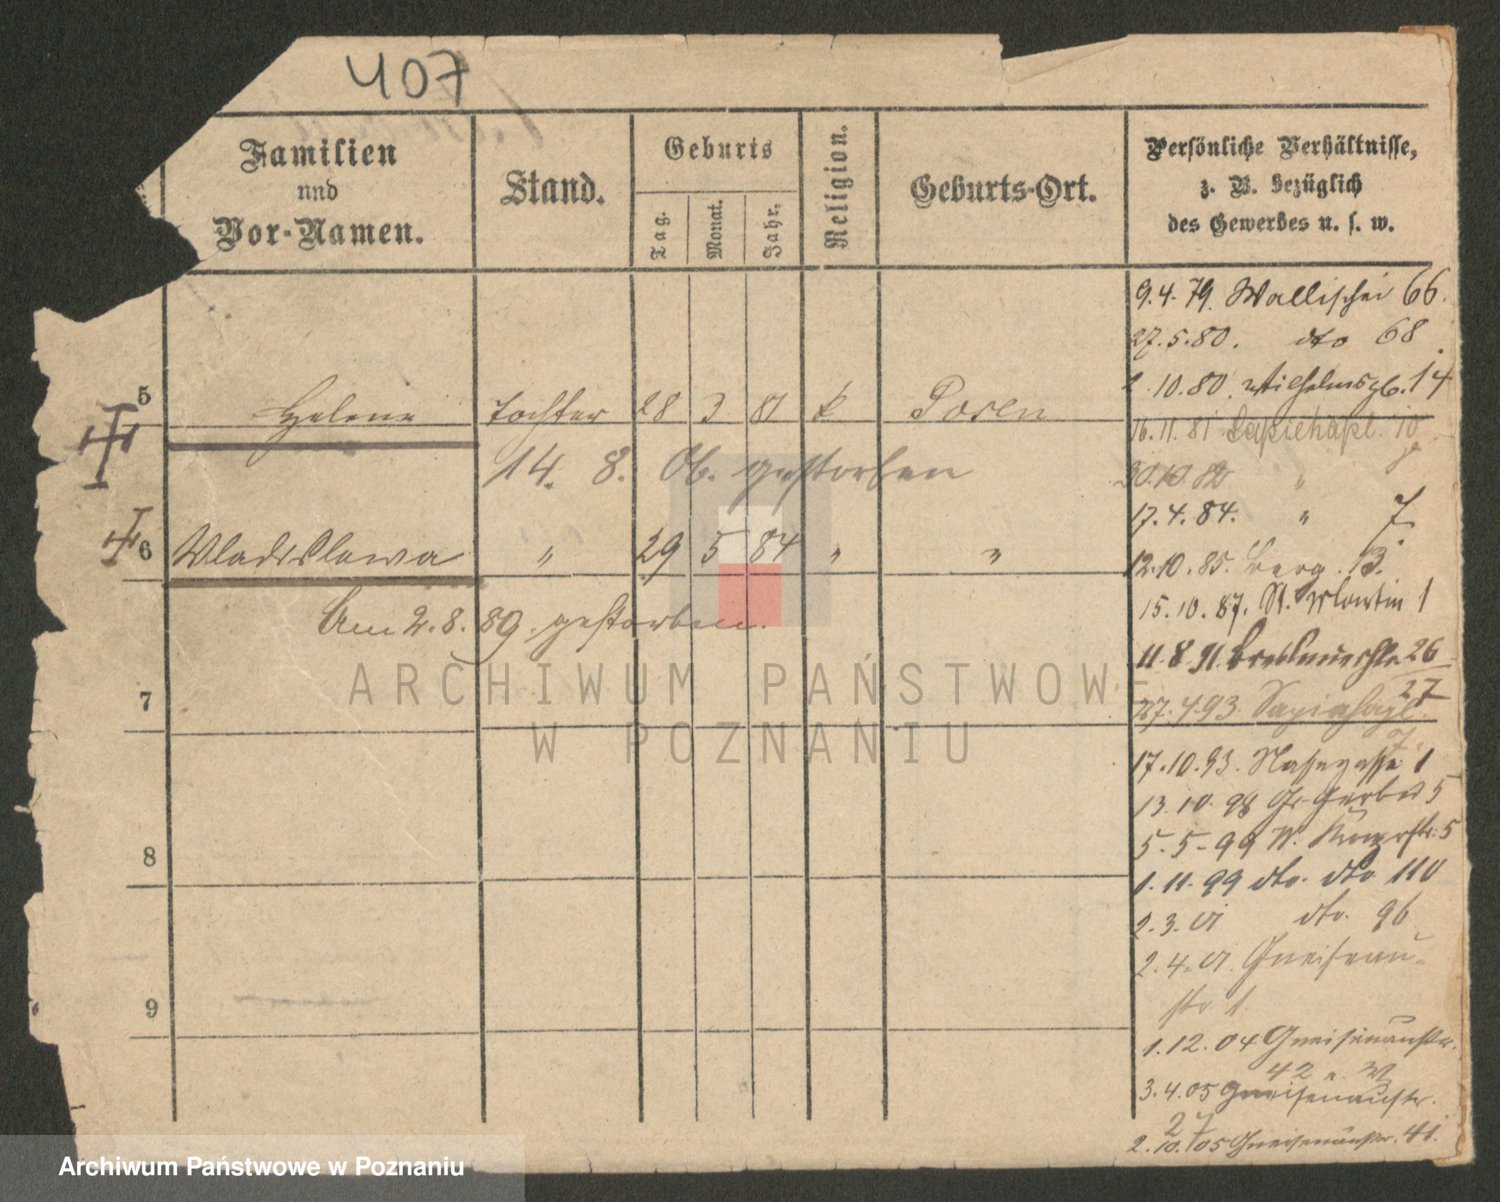 407
Familien
und
Vor-Namen.
Stand.
Geburts
Tag.
Monat.
Jahr.
Religion.
Geburts-Ort.
Persönliche Verhältnisse,
z. B. bezüglich
des Gewerbes u. s. w.
9.4.79. Wallischei 66.
27.5.80. dto 68
10.80. Wilhelmspl. 14
5 Helene Tochter 28 3 81 k Posen
16.11.81 Sapiehapl. 10
14. 8. gestorben
30.10.82 "
17.4.84. " 7
6 Wladislawa " 29 5 84 " "
12.10.85. Berg. 13.
15.10.87. St. Martin 1
Am 2.8.89. gestorben.
11.8.91. Breslauerstr 26
27
7
27.4.93 Sapiehapl.
7.
17.10.93. Nassegasse 1
13.10.98 Gr. Gerber 5
5.5.99 W. 5
8
1.11.99 dto. dto 110
2.3.01 dto. 96
2.4.01. Gneisenau-
str 1.
9
1.12.04 Gneisenaustr.
42 W
3.4.05 Gneisenaustr.
27
2.10.05 Gneisenaustr. 41.
ARCHIWUM PAŃSTWOW
W POZNANIU
Archiwum Państwowe w Poznaniu